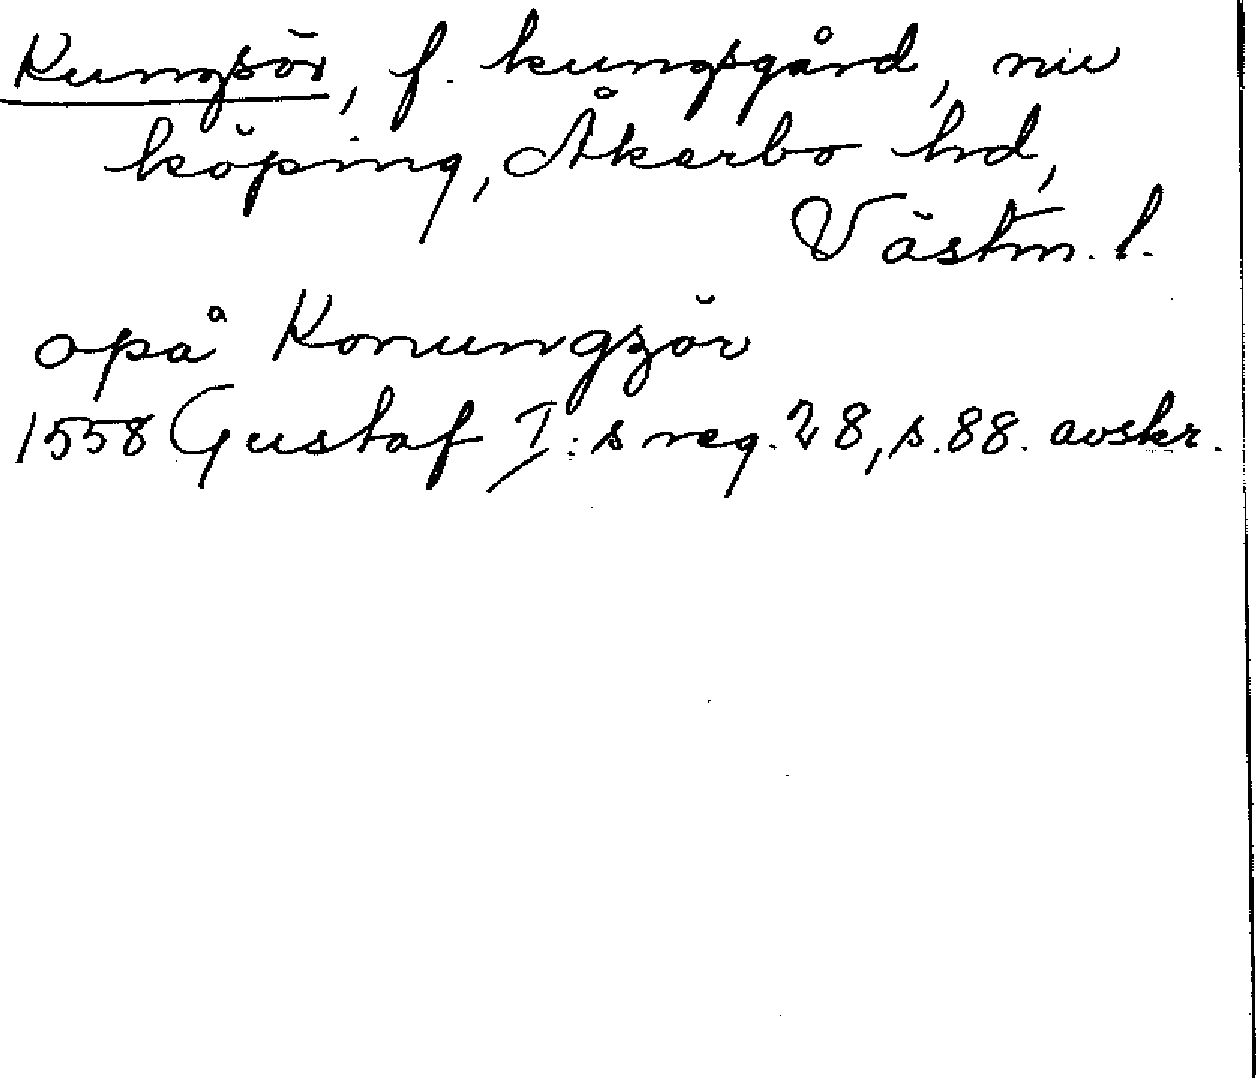 Kungsör, f. kungsgård, nu
köping, Åkerbo hd,
Västm. l.
opå Konungzör
1558 Gustaf I:s reg. 28, s. 88. avskr.